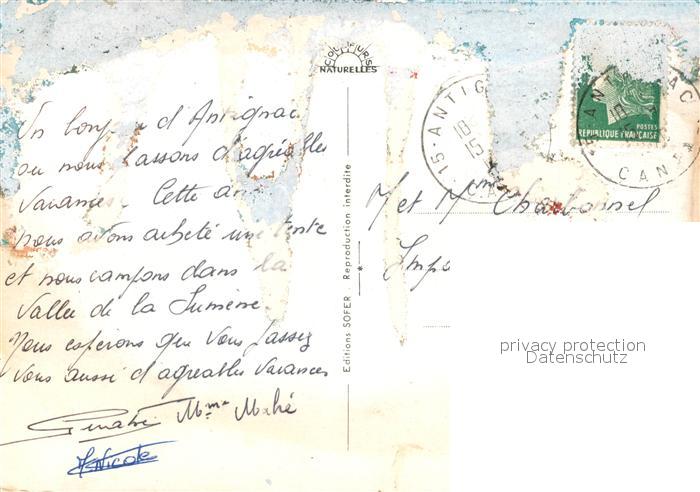 COULEURS
NATURELLES
Un bonjour d'Antignac
ou nous passons d'agréables
Vacances. Cette an
nous avons acheté une tente
et nous campons dans la
Vallée de la Sumène.
Nous espérons que Vous passez
Vous aussi d'agréables Vacances
Mme Mahé
Nicole
Editions SOFER . Reproduction interdite
15 - ANTIG
18
15
ANTI AC
18
CANT
POSTES
REPUBLIQUE FRANÇAISE
M et Mme Charbonnel
Imp
privacy protection
Datenschutz